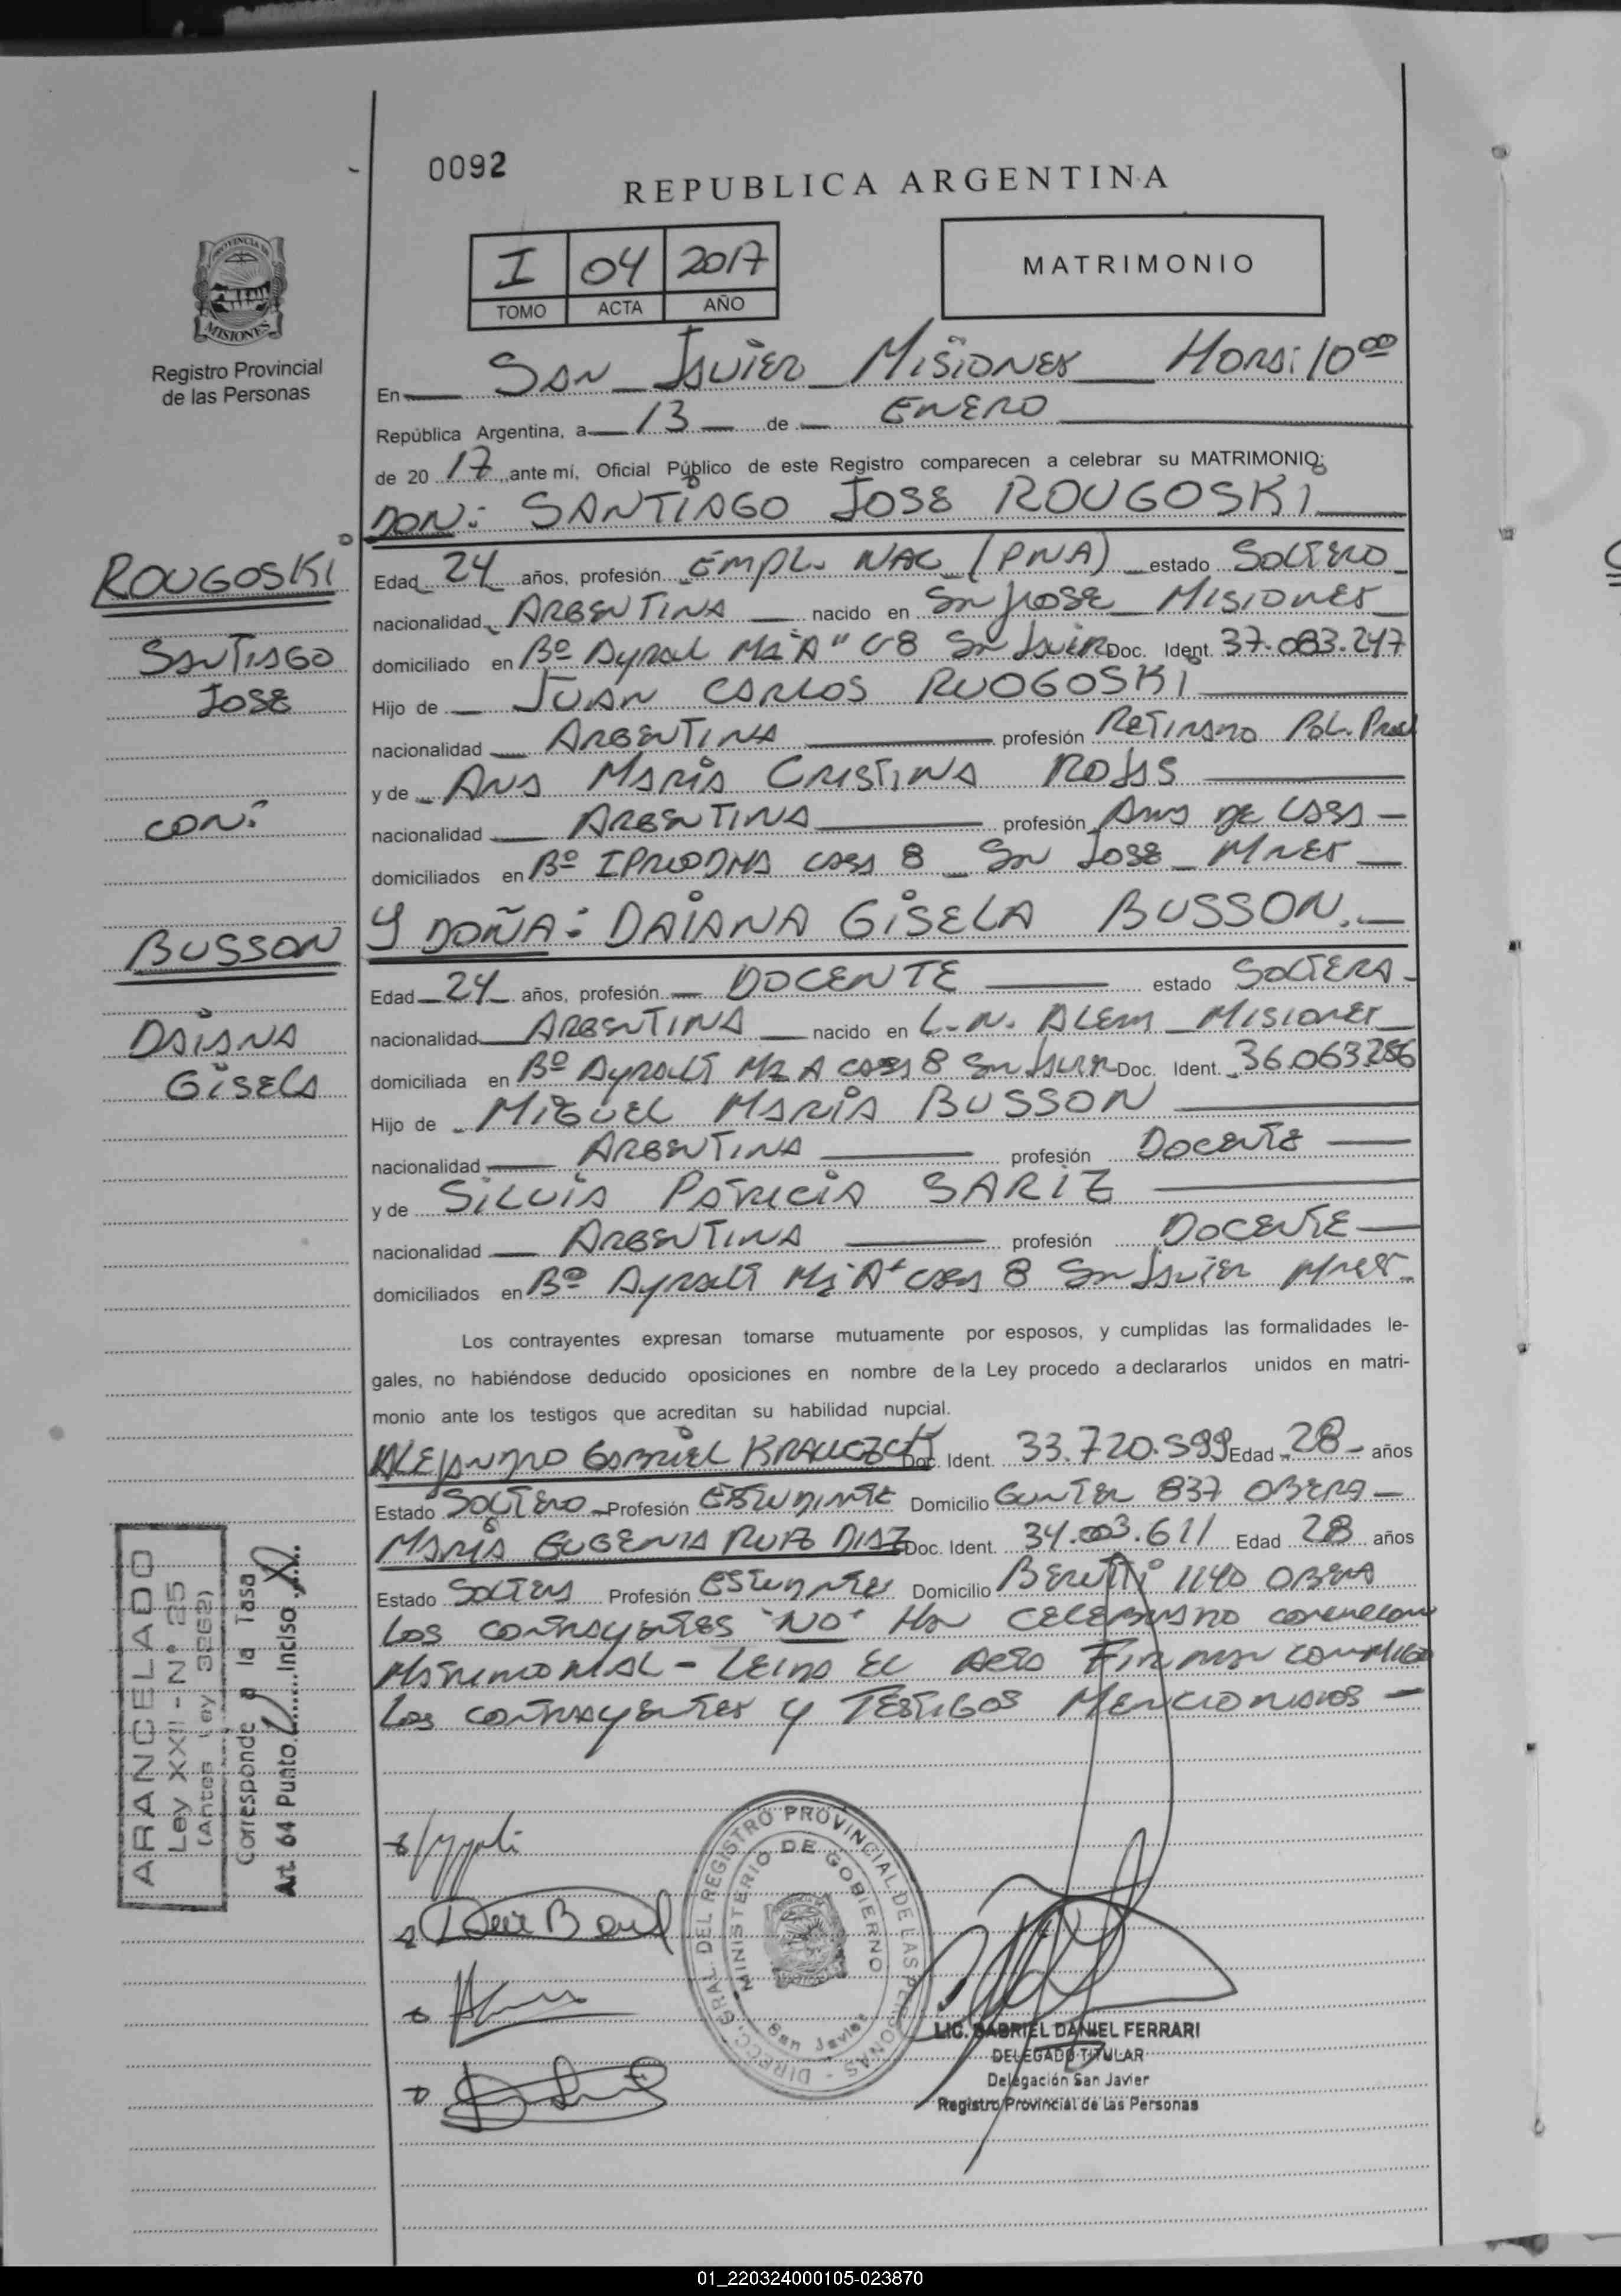 0092
REPUBLICA ARGENTINA
I 04 2017
TOMO ACTA AÑO
MATRIMONIO
PROVINCIA DE
MISIONES
Registro Provincial
de las Personas
En SAN JAVIER MISIONES HORA: 10⁰⁰
República Argentina, a 13 de ENERO
de 20 17, ante mí, Oficial Público de este Registro comparecen a celebrar su MATRIMONIO:
DON: SANTIAGO JOSE ROUGOSKI
ROUGOSKI
SANTIAGO
JOSE
CON:
BUSSON
DAIANA
GISELA
Edad 24 años, profesión EMPL. NAC (PNA) estado SOLTERO
nacionalidad ARGENTINA nacido en San JOSE MISIONES
domiciliado en Bº Ayrault Mz "A" C8 San Javier Doc. Ident. 37.083.247
Hijo de JUAN CARLOS RUOGOSKI
nacionalidad ARGENTINA profesión RETIRADO POL. Prov
y de ANA MARIA CRISTINA ROJAS
nacionalidad ARGENTINA profesión AMA DE CASA
domiciliados en Bº IPRODHA CASA 8 San JOSE Mnes
Y DOÑA: DAIANA GISELA BUSSON.
Edad 24 años, profesión DOCENTE estado SOLTERA
nacionalidad ARGENTINA nacido en L.N. ALEM MISIONES
domiciliada en Bº Ayrault Mz A CASA 8 San Javier Doc. Ident. 36.063.286
Hijo de MIGUEL MARIA BUSSON
nacionalidad ARGENTINA profesión DOCENTE
y de SILVIA PATRICIA SARIZ
nacionalidad ARGENTINA profesión DOCENTE
domiciliados en Bº Ayrault Mz "A" CASA 8 San Javier Mnes
Los contrayentes expresan tomarse mutuamente por esposos, y cumplidas las formalidades le-
gales, no habiéndose deducido oposiciones en nombre de la Ley procedo a declararlos unidos en matri-
monio ante los testigos que acreditan su habilidad nupcial.
ALEJANDRO GABRIEL KRAUCZUK Doc. Ident. 33.720.599 Edad 28 años
Estado SOLTERO Profesión ESTUDIANTE Domicilio GUNTER 837 OBERA
MARIA EUGENIA RUIZ DIAZ Doc. Ident. 34.003.611 Edad 28 años
Estado SOLTERA Profesión ESTUDIANTE Domicilio BERUTTI 1140 OBERA
LOS CONTRAYENTES "NO" HAN CELEBRADO CONVENCION
MATRIMONIAL - LEIDA EL ACTA FIRMAN CONMIGO
LOS CONTRAYENTES Y TESTIGOS MENCIONADOS
ARANCELADO
Ley XXII - Nº 25
(Antes Ley 3262)
Corresponde a la Tasa
Art. 64 Punto Inciso
DIRECC. GRAL. DEL REGISTRO PROVINCIAL DE LAS PERSONAS
MINISTERIO DE GOBIERNO
San Javier
LIC. GABRIEL DANIEL FERRARI
DELEGADO TITULAR
Delegación San Javier
Registro Provincial de las Personas
01_220324000105-023870